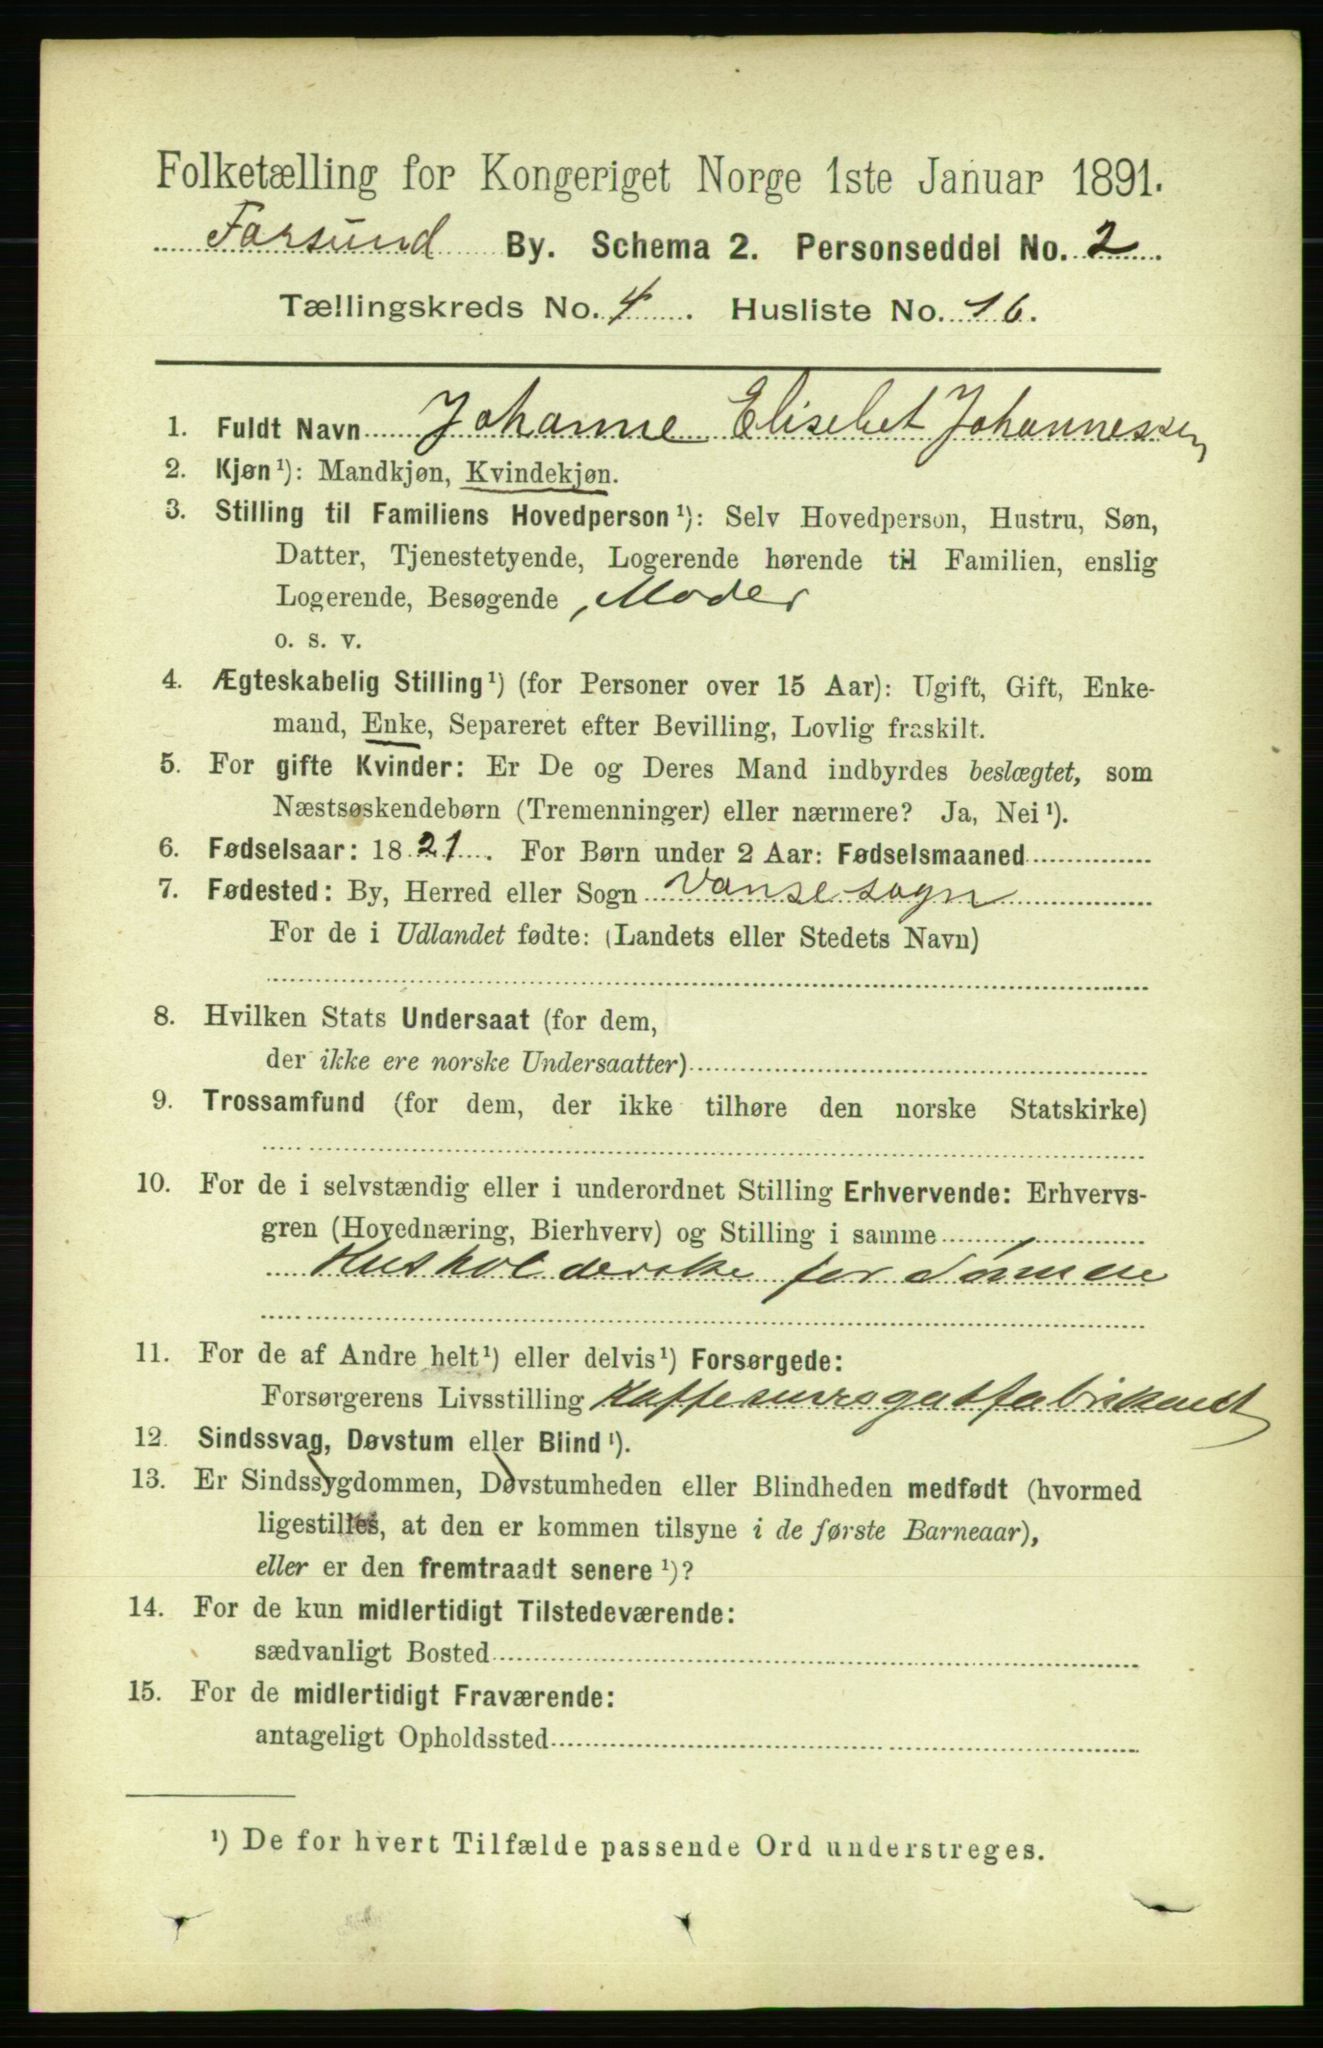 Folketælling for Kongeriget Norge 1ste Januar 1891.
Farsund By. Schema 2. Personseddel No. 2.
Tællingskreds No. 4. Husliste No. 16.
1. Fuldt Navn Johanne Elisebet Johannessen
2. Kjøn¹): Mandkjøn, Kvindekjøn.
3. Stilling til Familiens Hovedperson¹): Selv Hovedperson, Hustru, Søn,
Datter, Tjenestetyende, Logerende hørende til Familien, enslig
Logerende, Besøgende, Moder
o. s. v.
4. Ægteskabelig Stilling¹) (for Personer over 15 Aar): Ugift, Gift, Enke-
mand, Enke, Separeret efter Bevilling, Lovlig fraskilt.
5. For gifte Kvinder: Er De og Deres Mand indbyrdes beslægtet, som
Næstsøskendebørn (Tremenninger) eller nærmere? Ja, Nei¹).
6. Fødselsaar: 1821. For Børn under 2 Aar: Fødselsmaaned
7. Fødested: By, Herred eller Sogn Vanse sogn
For de i Udlandet fødte: (Landets eller Stedets Navn)
8. Hvilken Stats Undersaat (for dem,
der ikke ere norske Undersaatter)
9. Trossamfund (for dem, der ikke tilhøre den norske Statskirke)
10. For de i selvstændig eller i underordnet Stilling Erhvervende: Erhvervs-
gren (Hovednæring, Bierhverv) og Stilling i samme
Husholderske for Sønnen
11. For de af Andre helt¹) eller delvis¹) Forsørgede:
Forsørgerens Livsstilling Kaffesurrogatfabrikant
12. Sindssvag, Døvstum eller Blind¹).
13. Er Sindssygdommen, Døvstumheden eller Blindheden medfødt (hvormed
ligestilles, at den er kommen tilsyne i de første Barneaar),
eller er den fremtraadt senere¹)?
14. For de kun midlertidigt Tilstedeværende:
sædvanligt Bosted
15. For de midlertidigt Fraværende:
antageligt Opholdssted
¹) De for hvert Tilfælde passende Ord understreges.